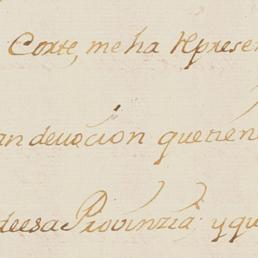 Corte, me ha repreſen
an devocion que tien
de esa Provinzia; y qu